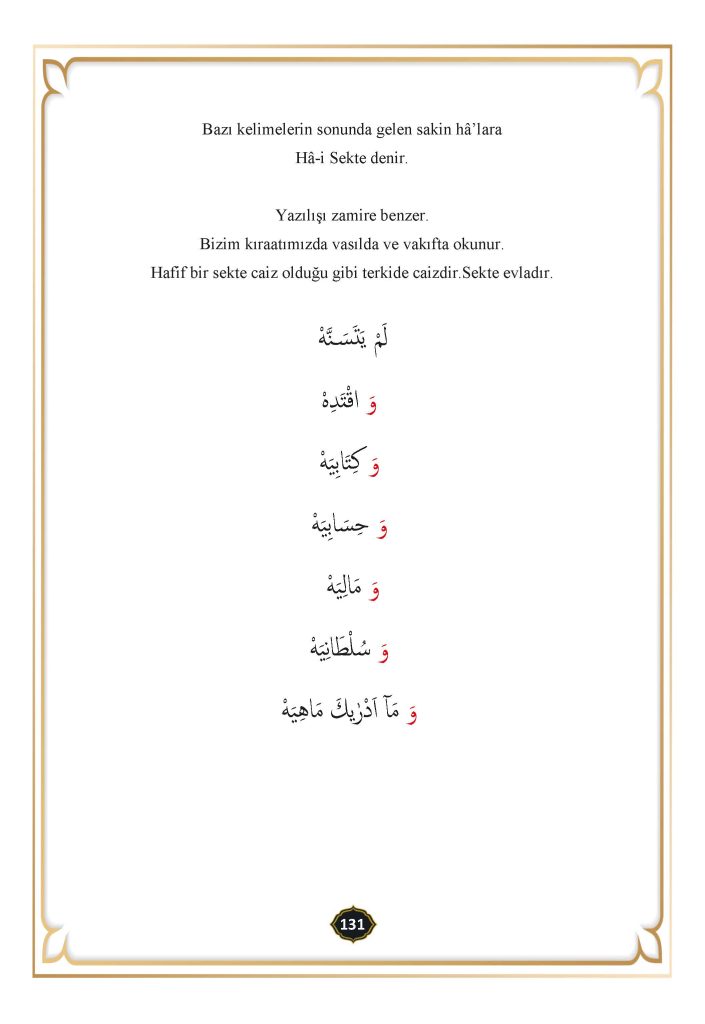 Bazı kelimelerin sonunda gelen sakin hâ’lara
Hâ-i Sekte denir.
Yazılışı zamire benzer.
Bizim kıraatımızda vasılda ve vakıfta okunur.
Hafif bir sekte caiz olduğu gibi terkide caizdir.Sekte evladır.
لَمْ يَتَسَنَّهْ
وَ اقْتَدِهْ
وَ كِتَابِيَهْ
وَ حِسَابِيَهْ
وَ مَالِيَهْ
وَ سُلْطَانِيَهْ
وَ مَٓا اَدْرٰيكَ مَاهِيَهْ
131